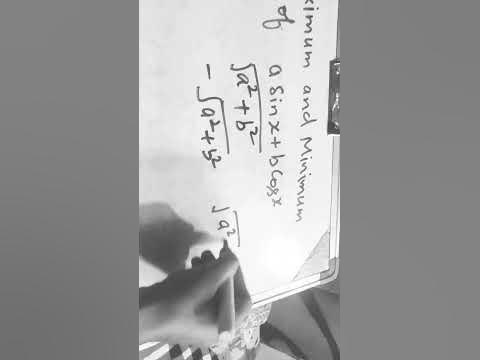 ximum and Minimum
of a sin x + b cos x
√a² + b²
- √a² + b²
√a²